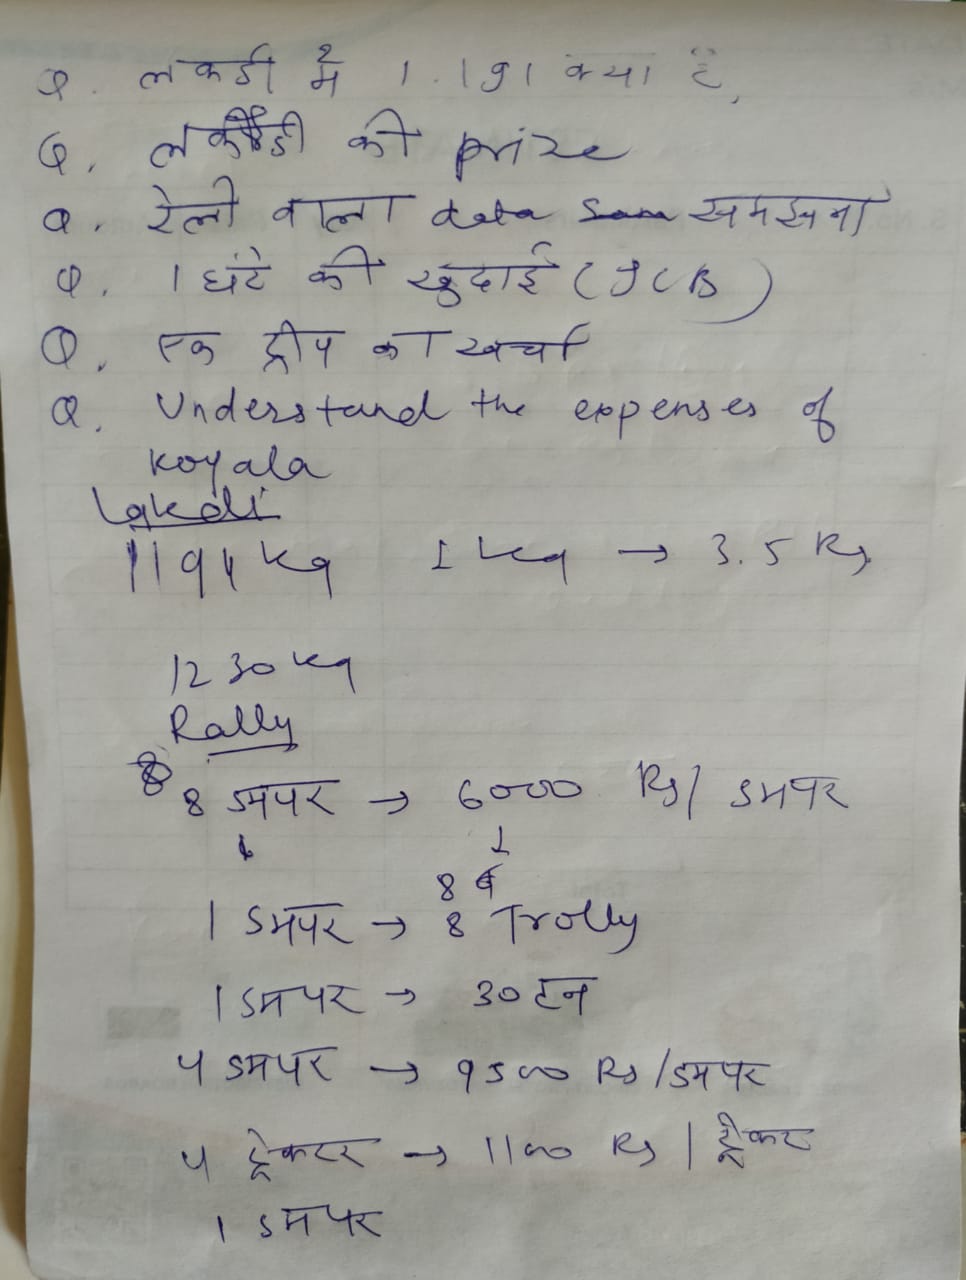 Q. लकडी में 1.191 क्या है,
Q. लकडी की prize
Q. रेली वाला data समझना
Q. 1 घंटे की खुदाई (JCB)
Q. एक ट्रीप का खर्चा
Q. Understand the expenses of
koyala
Lakdi
1194 kg 1 kg → 3.5 Rs
1230 kg
Rally
8 डमपर → 6000 Rs/ डमपर
8
1 डमपर → 8 Trolly
1 डमपर → 30 टन
4 डमपर → 9500 Rs/डमपर
4 ट्रेकटर → 1100 Rs | ट्रेकट
1 डमपर